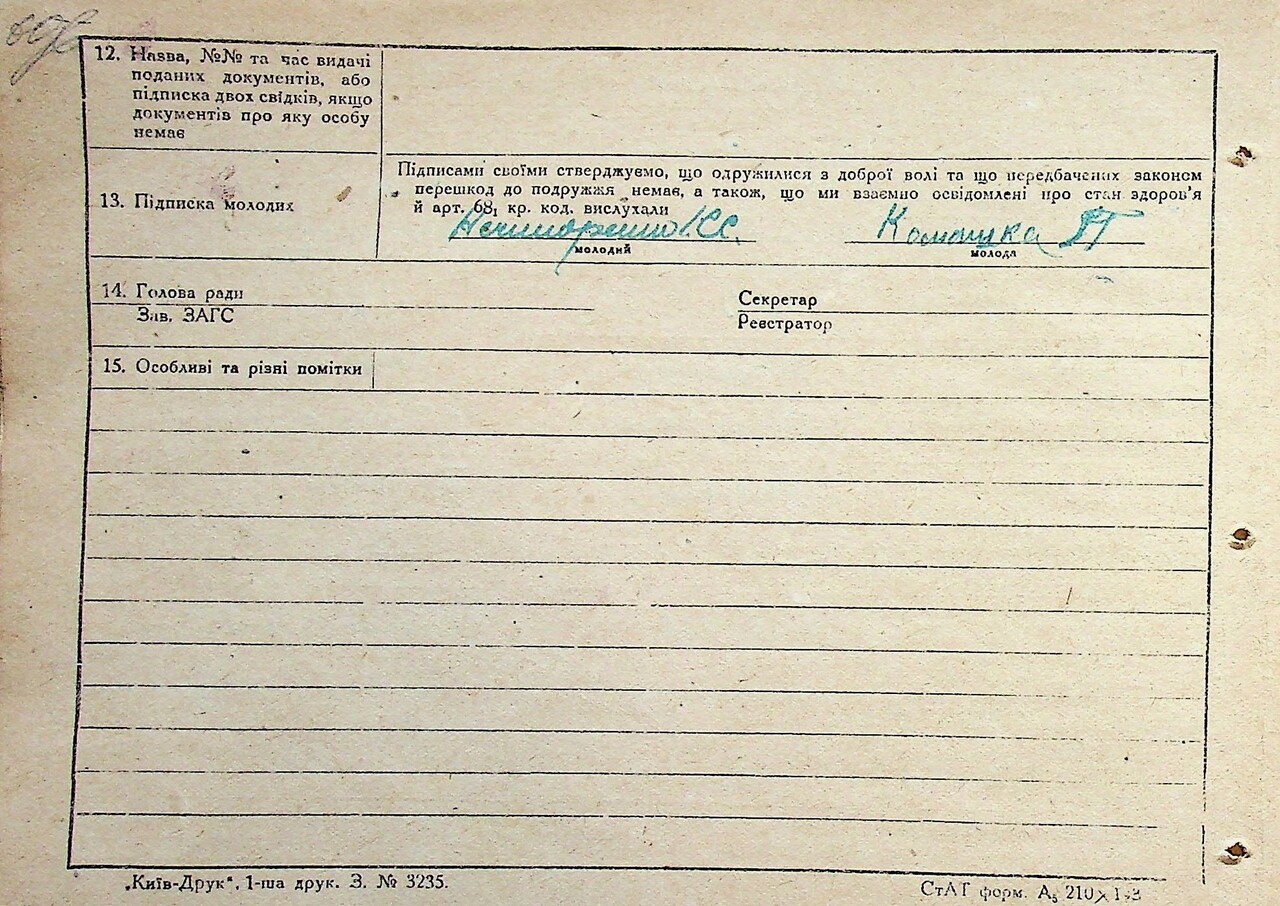 12. Назва, №№ та час видачі
поданих документів, або
підписка двох свідків, якщо
документів про яку особу
немає
Підписами своїми стверджуємо, що одружилися з доброї волі та що передбачених законом
перешкод до подружжя немає, а також, що ми взаємно освідомлені про стан здоров'я
13. Підписка молодих
й арт. 68₁ кр. код. вислухали
молодий
молода
14. Голова ради
Секретар
Зав. ЗАГС
Реєстратор
15. Особливі та різні помітки
„Київ-Друк“, 1-ша друк. З. № 3235.
СтАТ форм. А₅ 210×